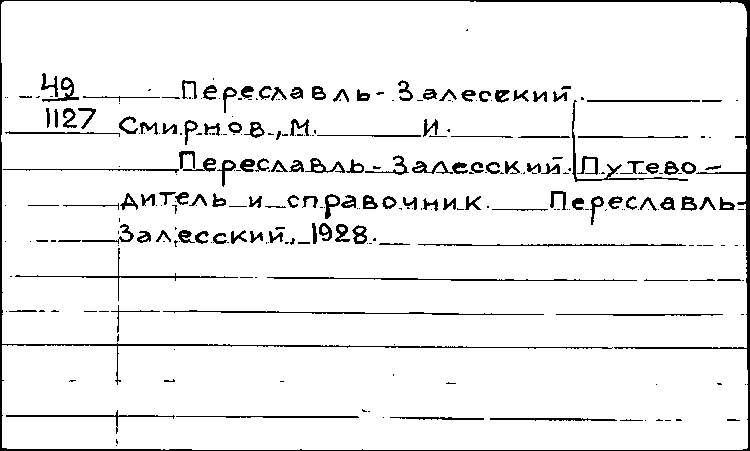 49 Переславль-Залесский.
1127 Смирнов, М. И.
Переславль-Залесский. Путево-
дитель и справочник. Переславль-
Залесский, 1928.